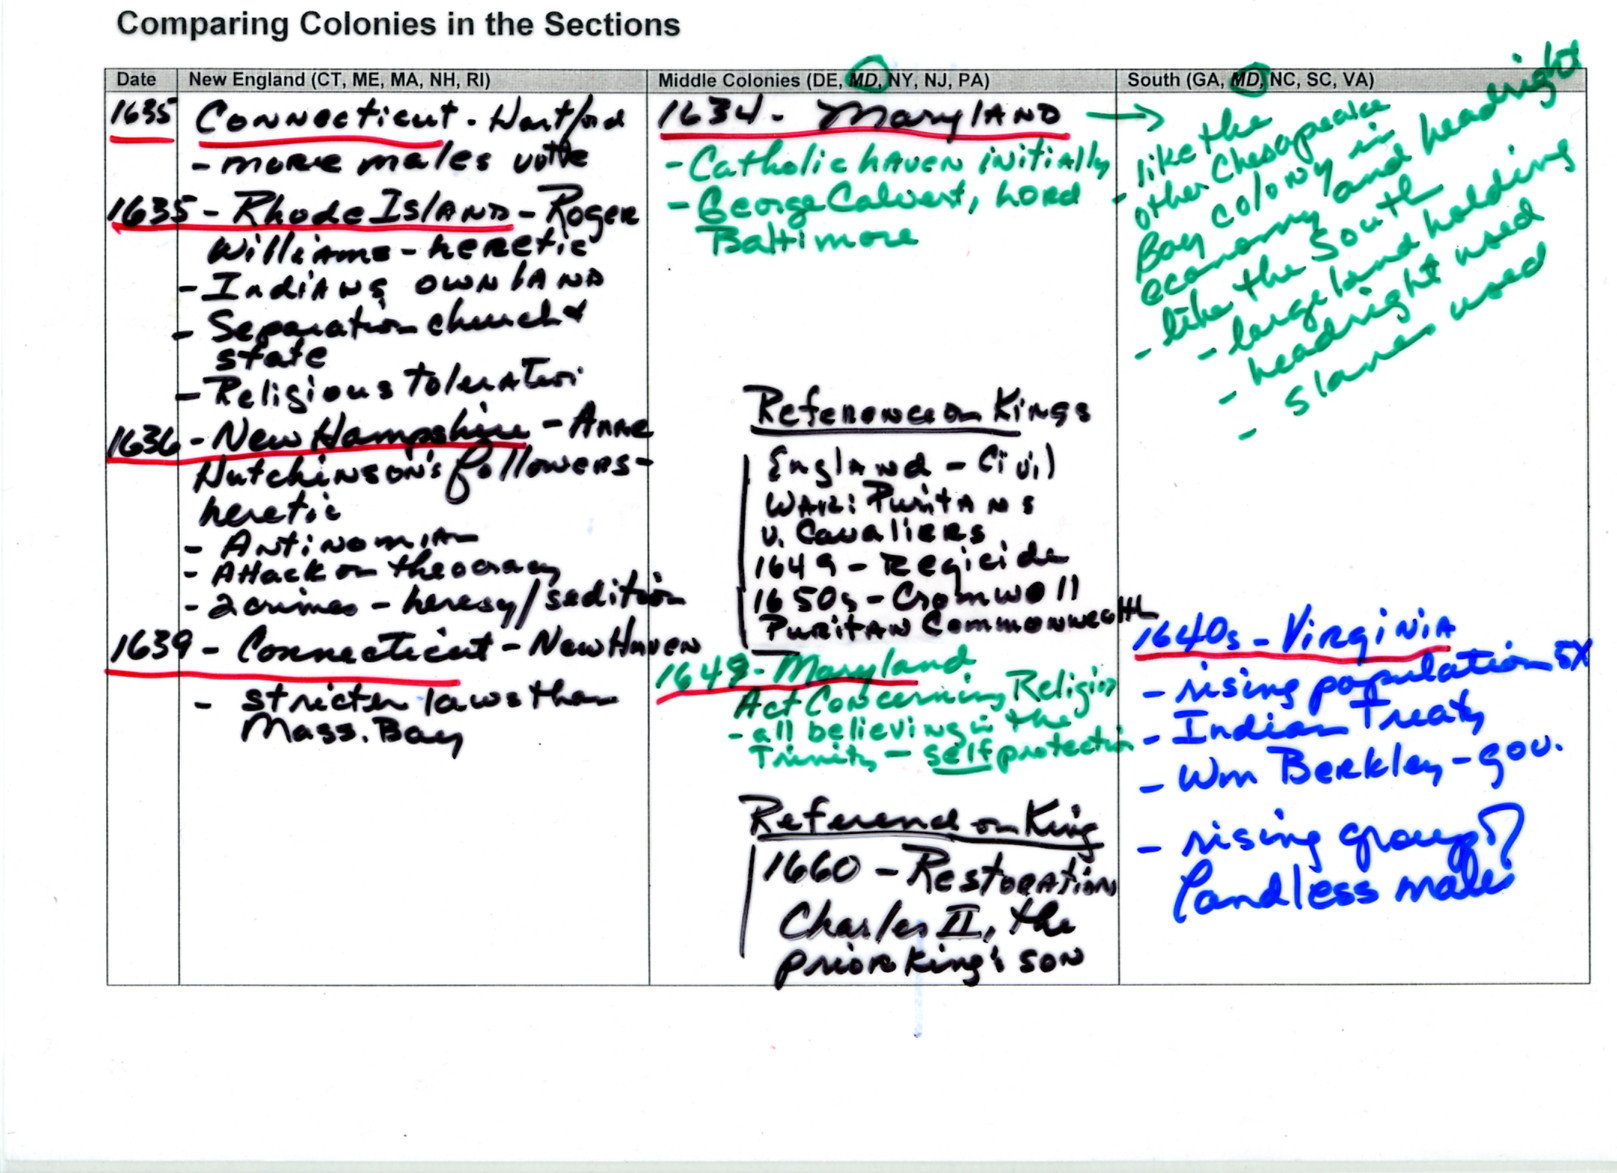 Comparing Colonies in the Sections
Date
New England (CT, ME, MA, NH, RI)
1635 Connecticut - Hartford
- more males vote
1635 - Rhode Island - Roger
Williams - heretic
- Indians own land
- Separation church &
state
- Religious toleration
1636 - New Hampshire - Anne
Hutchinson's followers -
heretic
- Antinomian
- Attack on theocracy
- 2 crimes - heresy/sedition
1639 - Connecticut - New Haven
- stricter laws than
Mass. Bay
Middle Colonies (DE, MD, NY, NJ, PA)
1634 - Maryland →
- Catholic haven initially
- George Calvert, Lord
Baltimore
Reference on Kings
England - Civil
War: Puritans
v. Cavaliers
1649 - Regicide
1650s - Cromwell
Puritan Commonwealth
1649 - Maryland
Act Concerning Religion
- all believing in the
Trinity - self protection
Reference on King
1660 - Restoration
Charles II, the
prior king's son
South (GA, MD, NC, SC, VA)
- like the
other Chesapeake
Bay colony in
economy and headright
- like the South
- large land holding
- headright used
- slaves used
1640s - Virginia
- rising population 5X
- Indian Treaty
- Wm Berkley - gov.
- rising group of
landless males